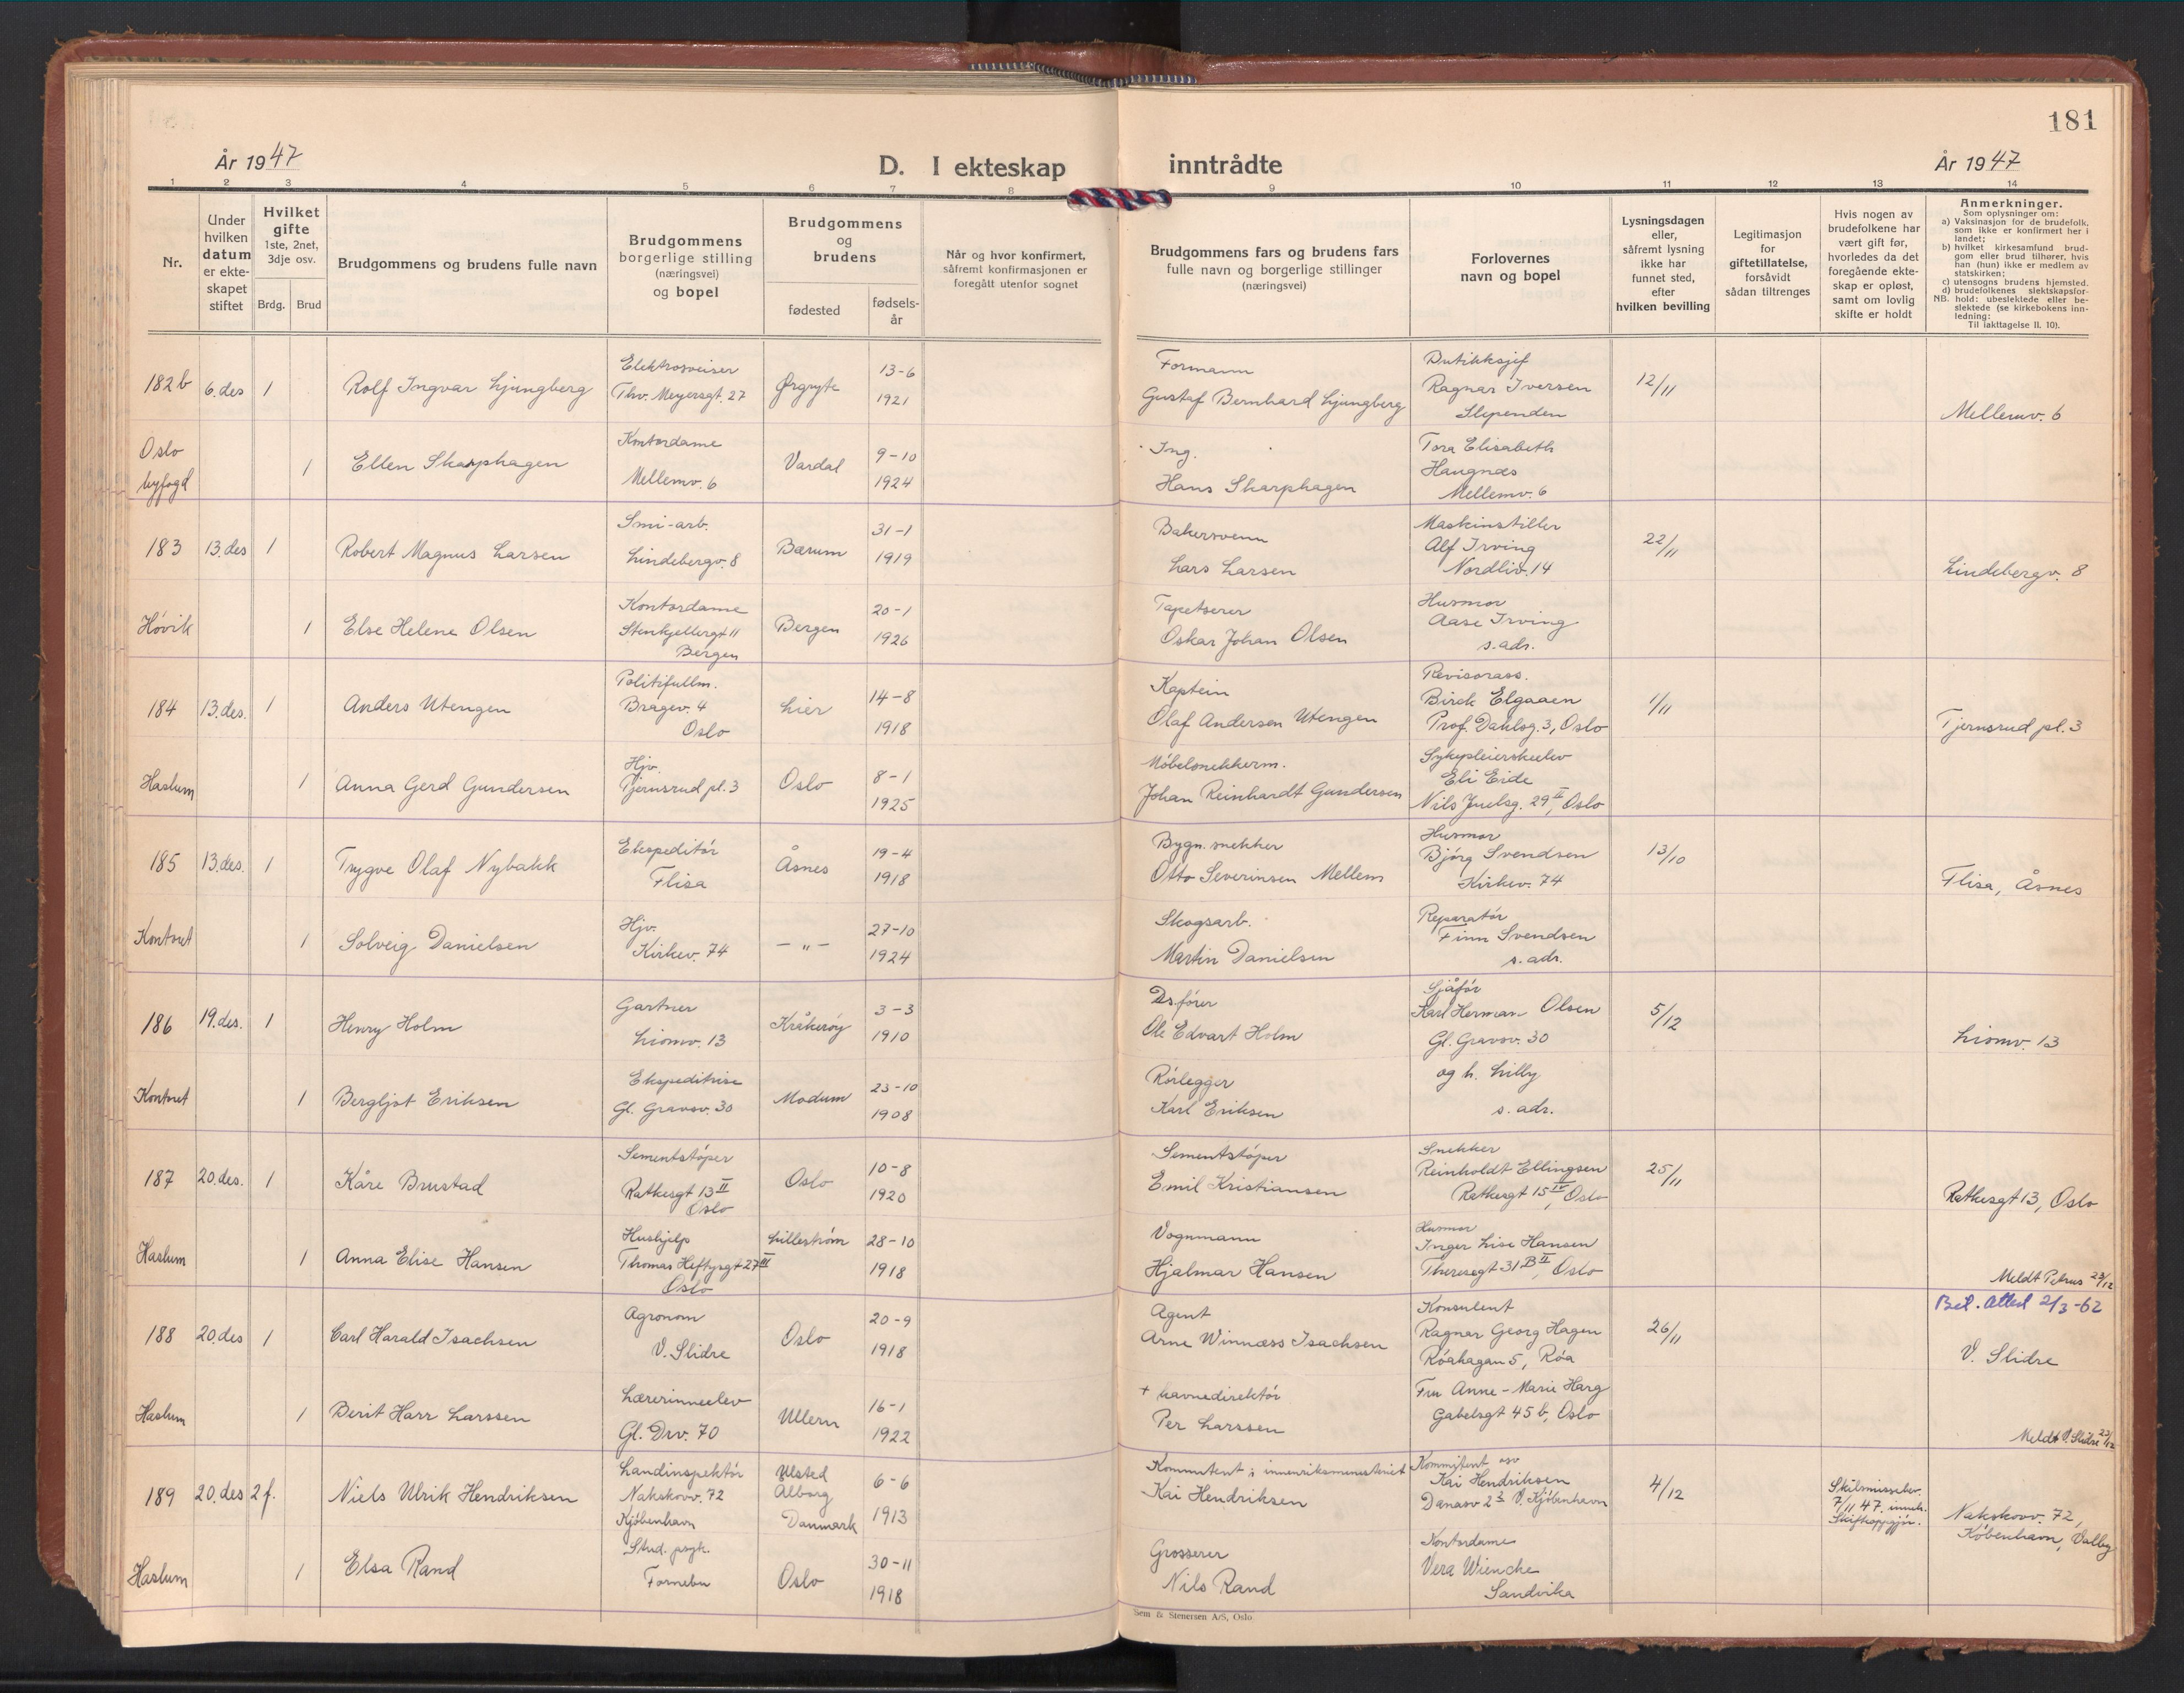 181
År 1947
D. I ekteskap inntrådte
År 1947
1 2 3 4 5 6 7 8 9 10 11 12 13 14
Nr.
Under
hvilken
datum
er ekte-
skapet
stiftet
Hvilket
gifte
1ste, 2net,
3dje osv.
Brdg. Brud
Brudgommens og brudens fulle navn
Brudgommens
borgerlige stilling
(næringsvei)
og bopel
Brudgommens
og
brudens
fødested
fødsels-
år
Når og hvor konfirmert,
såfremt konfirmasjonen er
foregått utenfor sognet
Brudgommens fars og brudens fars
fulle navn og borgerlige stillinger
(næringsvei)
Forlovernes
navn og bopel
Lysningsdagen
eller,
såfremt lysning
ikke har
funnet sted,
efter
hvilken bevilling
Legitimasjon
for
giftetillatelse,
forsåvidt
sådan tiltrenges
Hvis nogen av
brudefolkene har
vært gift før,
hvorledes da det
foregående ekte-
skap er opløst,
samt om lovlig
skifte er holdt
Anmerkninger.
Som oplysninger om:
a) Vaksinasjon for de brudefolk,
som ikke er konfirmert her i
landet;
b) hvilket kirkesamfund brud-
gom eller brud tilhører, hvis
han (hun) ikke er medlem av
statskirken;
c) utensogns brudens hjemsted.
d) brudefolkenes slektskapsfor-
NB. hold: ubeslektede eller be-
slektede (se kirkebokens inn-
ledning:
Til iakttagelse II. 10).
182b 6. des 1 Rolf Ingvar Ljungberg
Elektrosveiser
Thv. Meyersgt. 27
Ørgryte
13-6
1921
Formann
Gustaf Bernhard Ljungberg
Butikksjef
Ragnar Iversen
Slependen
12/11
Mellemv. 6
Oslo
byfogd
1 Ellen Skarphagen
Kontordame
Mellemv. 6
Vardal
9-10
1924
Ing.
Hans Skarphagen
Tora Elisabeth
Haugnæs
Mellemv. 6
183 13. des 1 Robert Magnus Larsen
Smi-arb.
Lindebergv. 8
Bærum
31-1
1919
Bakersvenn
Lars Larsen
Maskinstiller
Alf Irving
Nordliv. 14
22/11
Lindebergv. 8
Høvik
1 Else Helene Olsen
Kontordame
Stenkjellergt 11
Bergen
Bergen
20-1
1926
Tapetserer
Oskar Johan Olsen
Husmor
Aase Irving
s. adr.
184 13. des. 1 Anders Utengen
Politifullm.
Bragev. 4
Oslo
Lier
14-8
1918
Kaptein
Olaf Andersen Utengen
Revisorass.
Birck Elgaaen
Prof. Dahlsg. 3, Oslo
1/11
Tjernsrud pl. 3
Haslum
1 Anna Gerd Gundersen
Hjv.
Tjernsrud pl. 3
Oslo
8-1
1925
Møbelsnekkerm.
Johan Reinhardt Gundersen
Sykepleierskeelev
Eli Eide
Nils Juelsg. 29 II, Oslo
185 13. des. 1 Trygve Olaf Nybakk
Ekspeditør
Flisa
Åsnes
19-4
1918
Bygn. snekker
Otto Severinsen Mellem
Husmor
Bjørg Svendsen
Kirkev. 74
13/10
Flisa, Åsnes
Kontoret
1 Solveig Danielsen
Hjv.
Kirkev. 74
- " -
27-10
1924
Skogsarb.
Martin Danielsen
Reparatør
Finn Svendsen
s. adr.
186 19. des. 1 Henry Holm
Gartner
Liomv. 13
Kråkerøy
3-3
1910
Ds fører
Ole Edvart Holm
Sjåfør
Karl Herman Olsen
Gl. Gravsv. 30
5/12
Liomv. 13
Kontoret
1 Bergljot Eriksen
Ekspeditrise
Gl. Gravsv. 30
Modum
23-10
1908
Rørlegger
Karl Eriksen
og h. Lilly
s. adr.
187 20. des. 1 Kåre Brustad
Sementstøper
Rathkesgt 13 II
Oslo
Oslo
10-8
1920
Sementstøper
Emil Kristiansen
Snekker
Reinholdt Ellingsen
Rathkesgt 15 IV, Oslo
25/11
Rathkesgt 13, Oslo
Haslum
1 Anna Elise Hansen
Hushjelp
Thomas Heftysgt 27 III
Oslo
Lillestrøm
28-10
1918
Vognmann
Hjalmar Hansen
Husmor
Inger Lise Hansen
Theresegt 31 B II, Oslo
Meldt Petrus 23/12
188 20. des 1 Carl Harald Isachsen
Agronom
V. Slidre
Oslo
20-9
1918
Agent
Arne Winnæss Isachsen
Konsulent
Ragnar Georg Hagen
Róahagan 5, Róa
26/11
Bel. attest 2/3-62
V. Slidre
Haslum
1 Berit Harr Larssen
Lærerinneelev
Gl. Drv. 70
Ullern
16-1
1922
+ havnedirektør
Per Larssen
Fru Anne-Marie Harg
Gabelsgt 45 b, Oslo
Meldt V. Slidre 23/12
189 20. des 2 f. Niels Ulrik Hendriksen
Landinspektør
Nakskovv. 72
Kjøbenhavn
Ulsted
Ålborg
Danmark
6-6
1913
Kommitent i innenriksministeriet
Kai Hendriksen
Kommitent osv
Kai Hendriksen
Danasv 2 3 V. Kjøbenhavn
4/12
Skilsmissebev.
7/11 47. innuk.
Skifteoppgjør.
Nakskovv. 72,
København, Valby
Haslum
1 Elsa Rand
Stud. psyk.
Fornebu
Oslo
30-11
1918
Grosserer
Nils Rand
Kontordame
Vera Wiencke
Sandvika
Sem & Stenersen A/S, Oslo